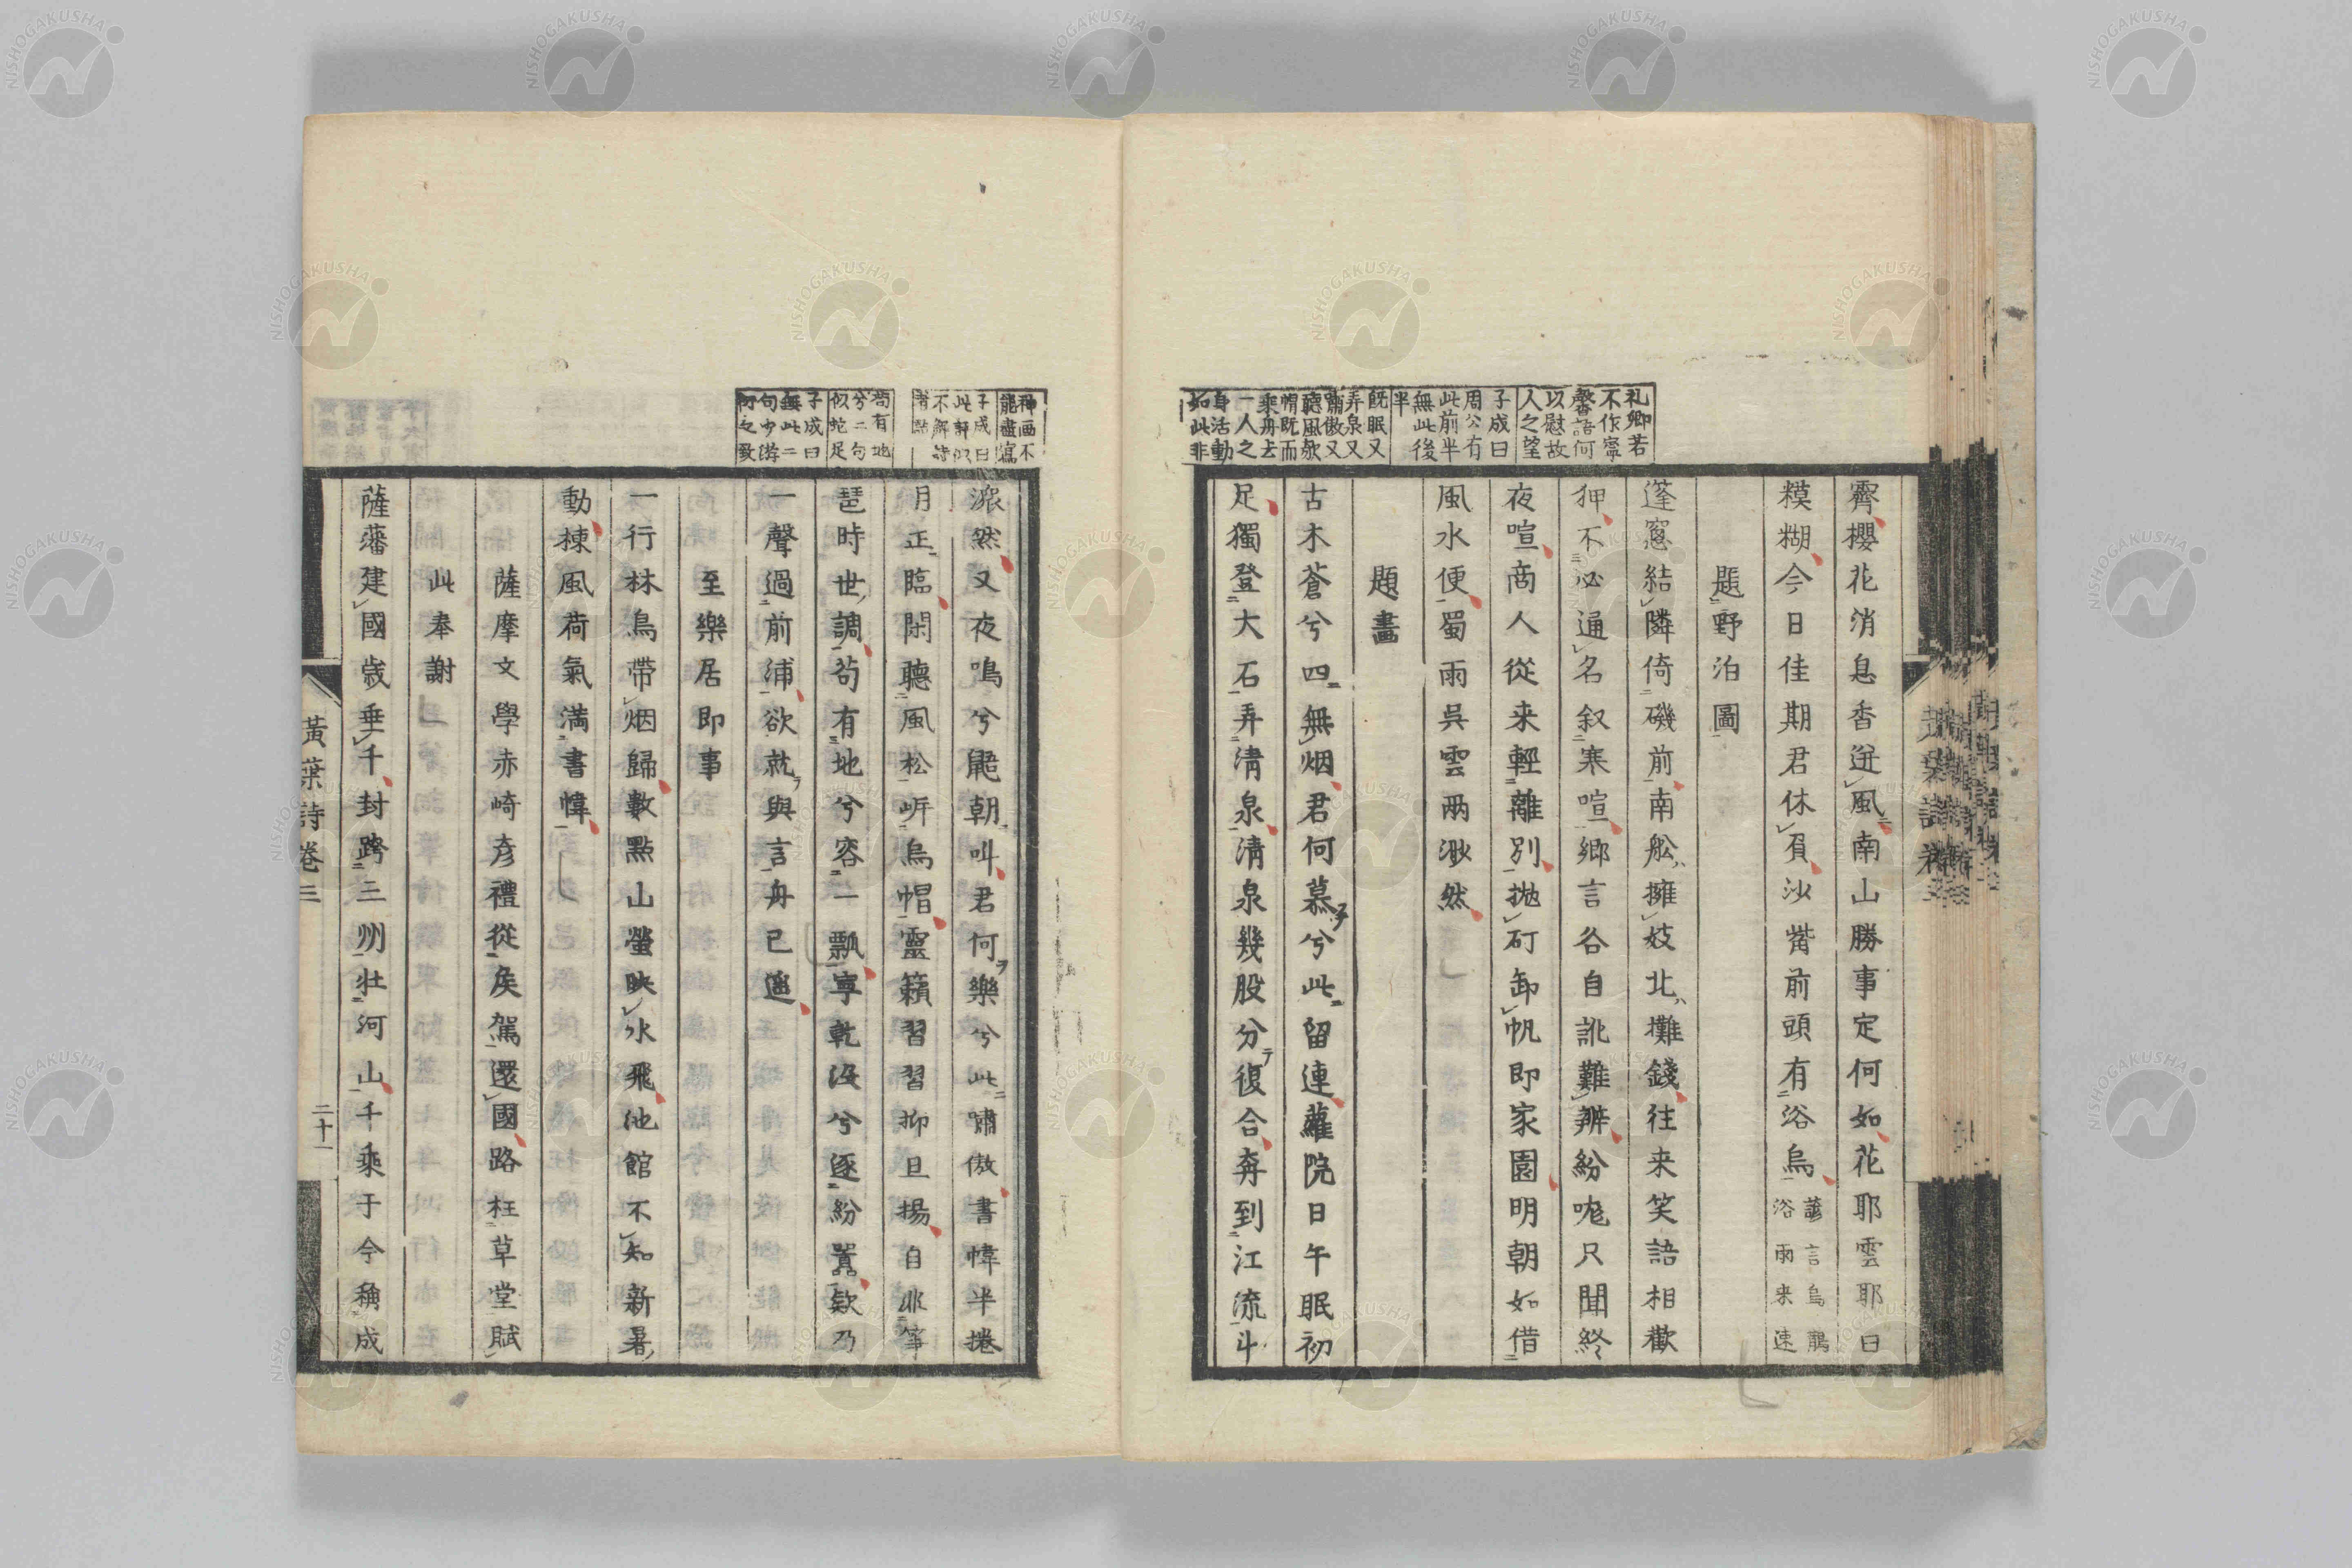 礼卿若
不作寧
馨語何
以慰故
人之望
子成曰
周公有
此前半
無此後
半
既眠又
弄泉又
嘯傲又
聽風欹
帽既而
乘舟去
一人之
身活動
如此非
霽櫻花消息香迸風南山勝事定何如花耶雲耶日
糢糊今日佳期君休負沙觜前頭有浴烏
諺言烏鵲
浴雨来速
題野泊圖
蓬窓結隣倚磯前南舩擁妓北攤錢往来笑語相歡
狎不必通名叙寒喧郷言各自訛難辨紛呶只聞終
夜喧商人從来輕離別抛矴卸帆即家園明朝如借
風水便蜀雨呉雲兩渺然
題畵
古木蒼兮四無烟君何慕兮此留連蘿院日午眠初
足獨登大石弄清泉清泉幾股分復合奔到江流斗
神画不
能盡寫
子成曰
此評似
不解詩
者點
苟有地
兮二句
似蛇足
子成曰
無此二
句少游
衍之致
潨然又夜鳴兮鼯朝叫君何樂兮此嘯傲書幃半捲
月正臨閑聽風松岸烏帽靈籟習習抑且揚自非箏
琶時世調苟有地兮容一瓢寧乾没兮逐紛囂欵乃
一聲過前浦欲就與言舟已遥
至樂居即事
一行林鳥帶烟歸數點山螢映水飛池館不知新暑
動棟風荷氣滿書幃
薩摩文學赤崎彦禮從矦駕還國路枉草堂賦
此奉謝
薩藩建國歳垂千封跨三州壮河山千乘于今稱成
黄葉詩卷三
二十一